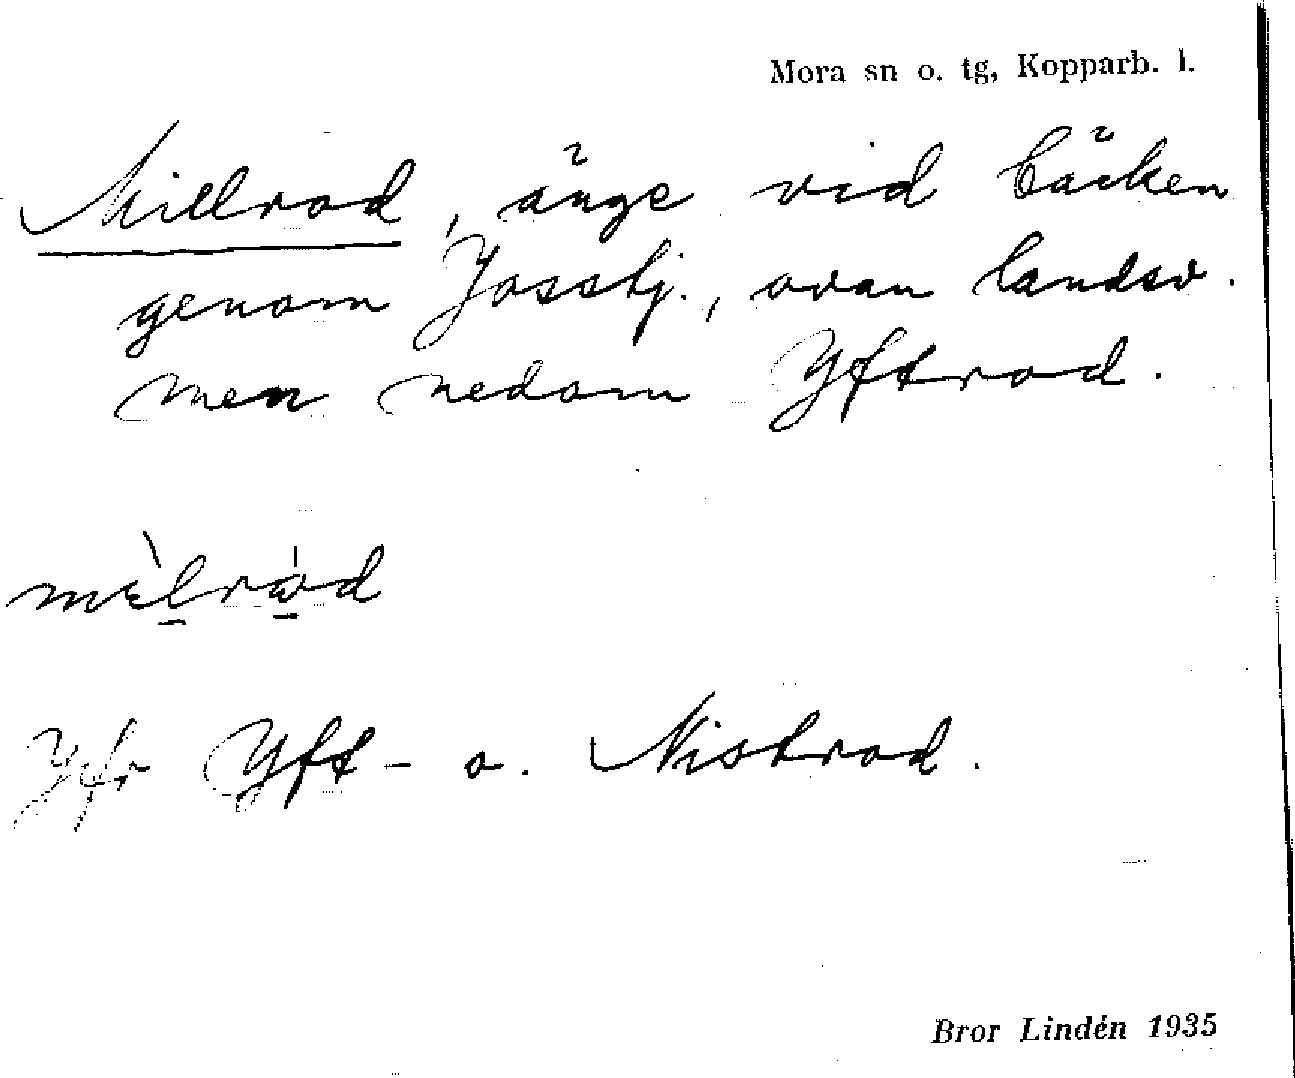 Mora sn o. tg, Kopparb. l.
Millrod, änge vid bäcken
genom Josstj., ovan landsv.
men nedom Yftrod.
mèlrod
Jfr Yft- o. Nistrod.
Bror Lindén 1935